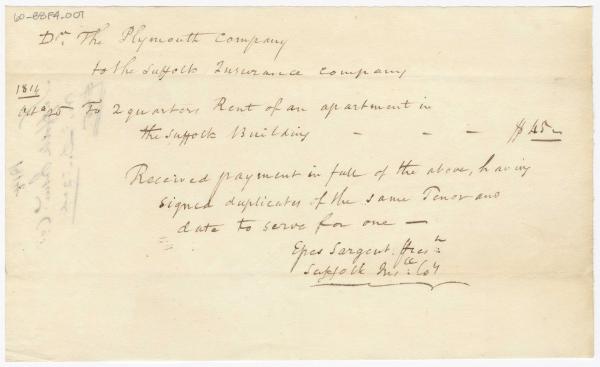 60-BBFA.001
Dr. The Plymouth Company
to the Suffolk Insurance Company
1816
To 2 quarters Rent of an apartment in
the Suffolk Building - - - $45—
Received payment in full of the above, having
signed duplicates of the same Tenor and
date to serve for one —
Epes Sargent
Suffolk Insce Coy